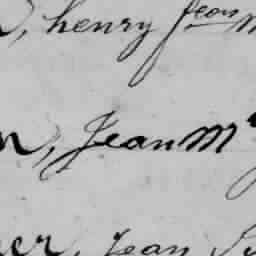 , henry Jean
, Jean M
er, Jean